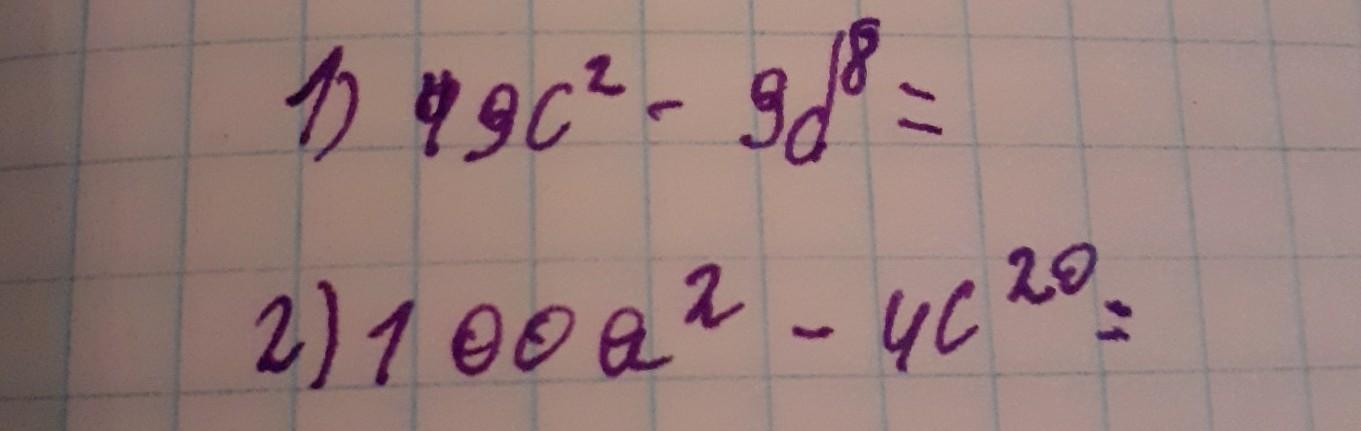 1) 49c² - 9d⁸ =
2) 100a² - 4c²⁰ =